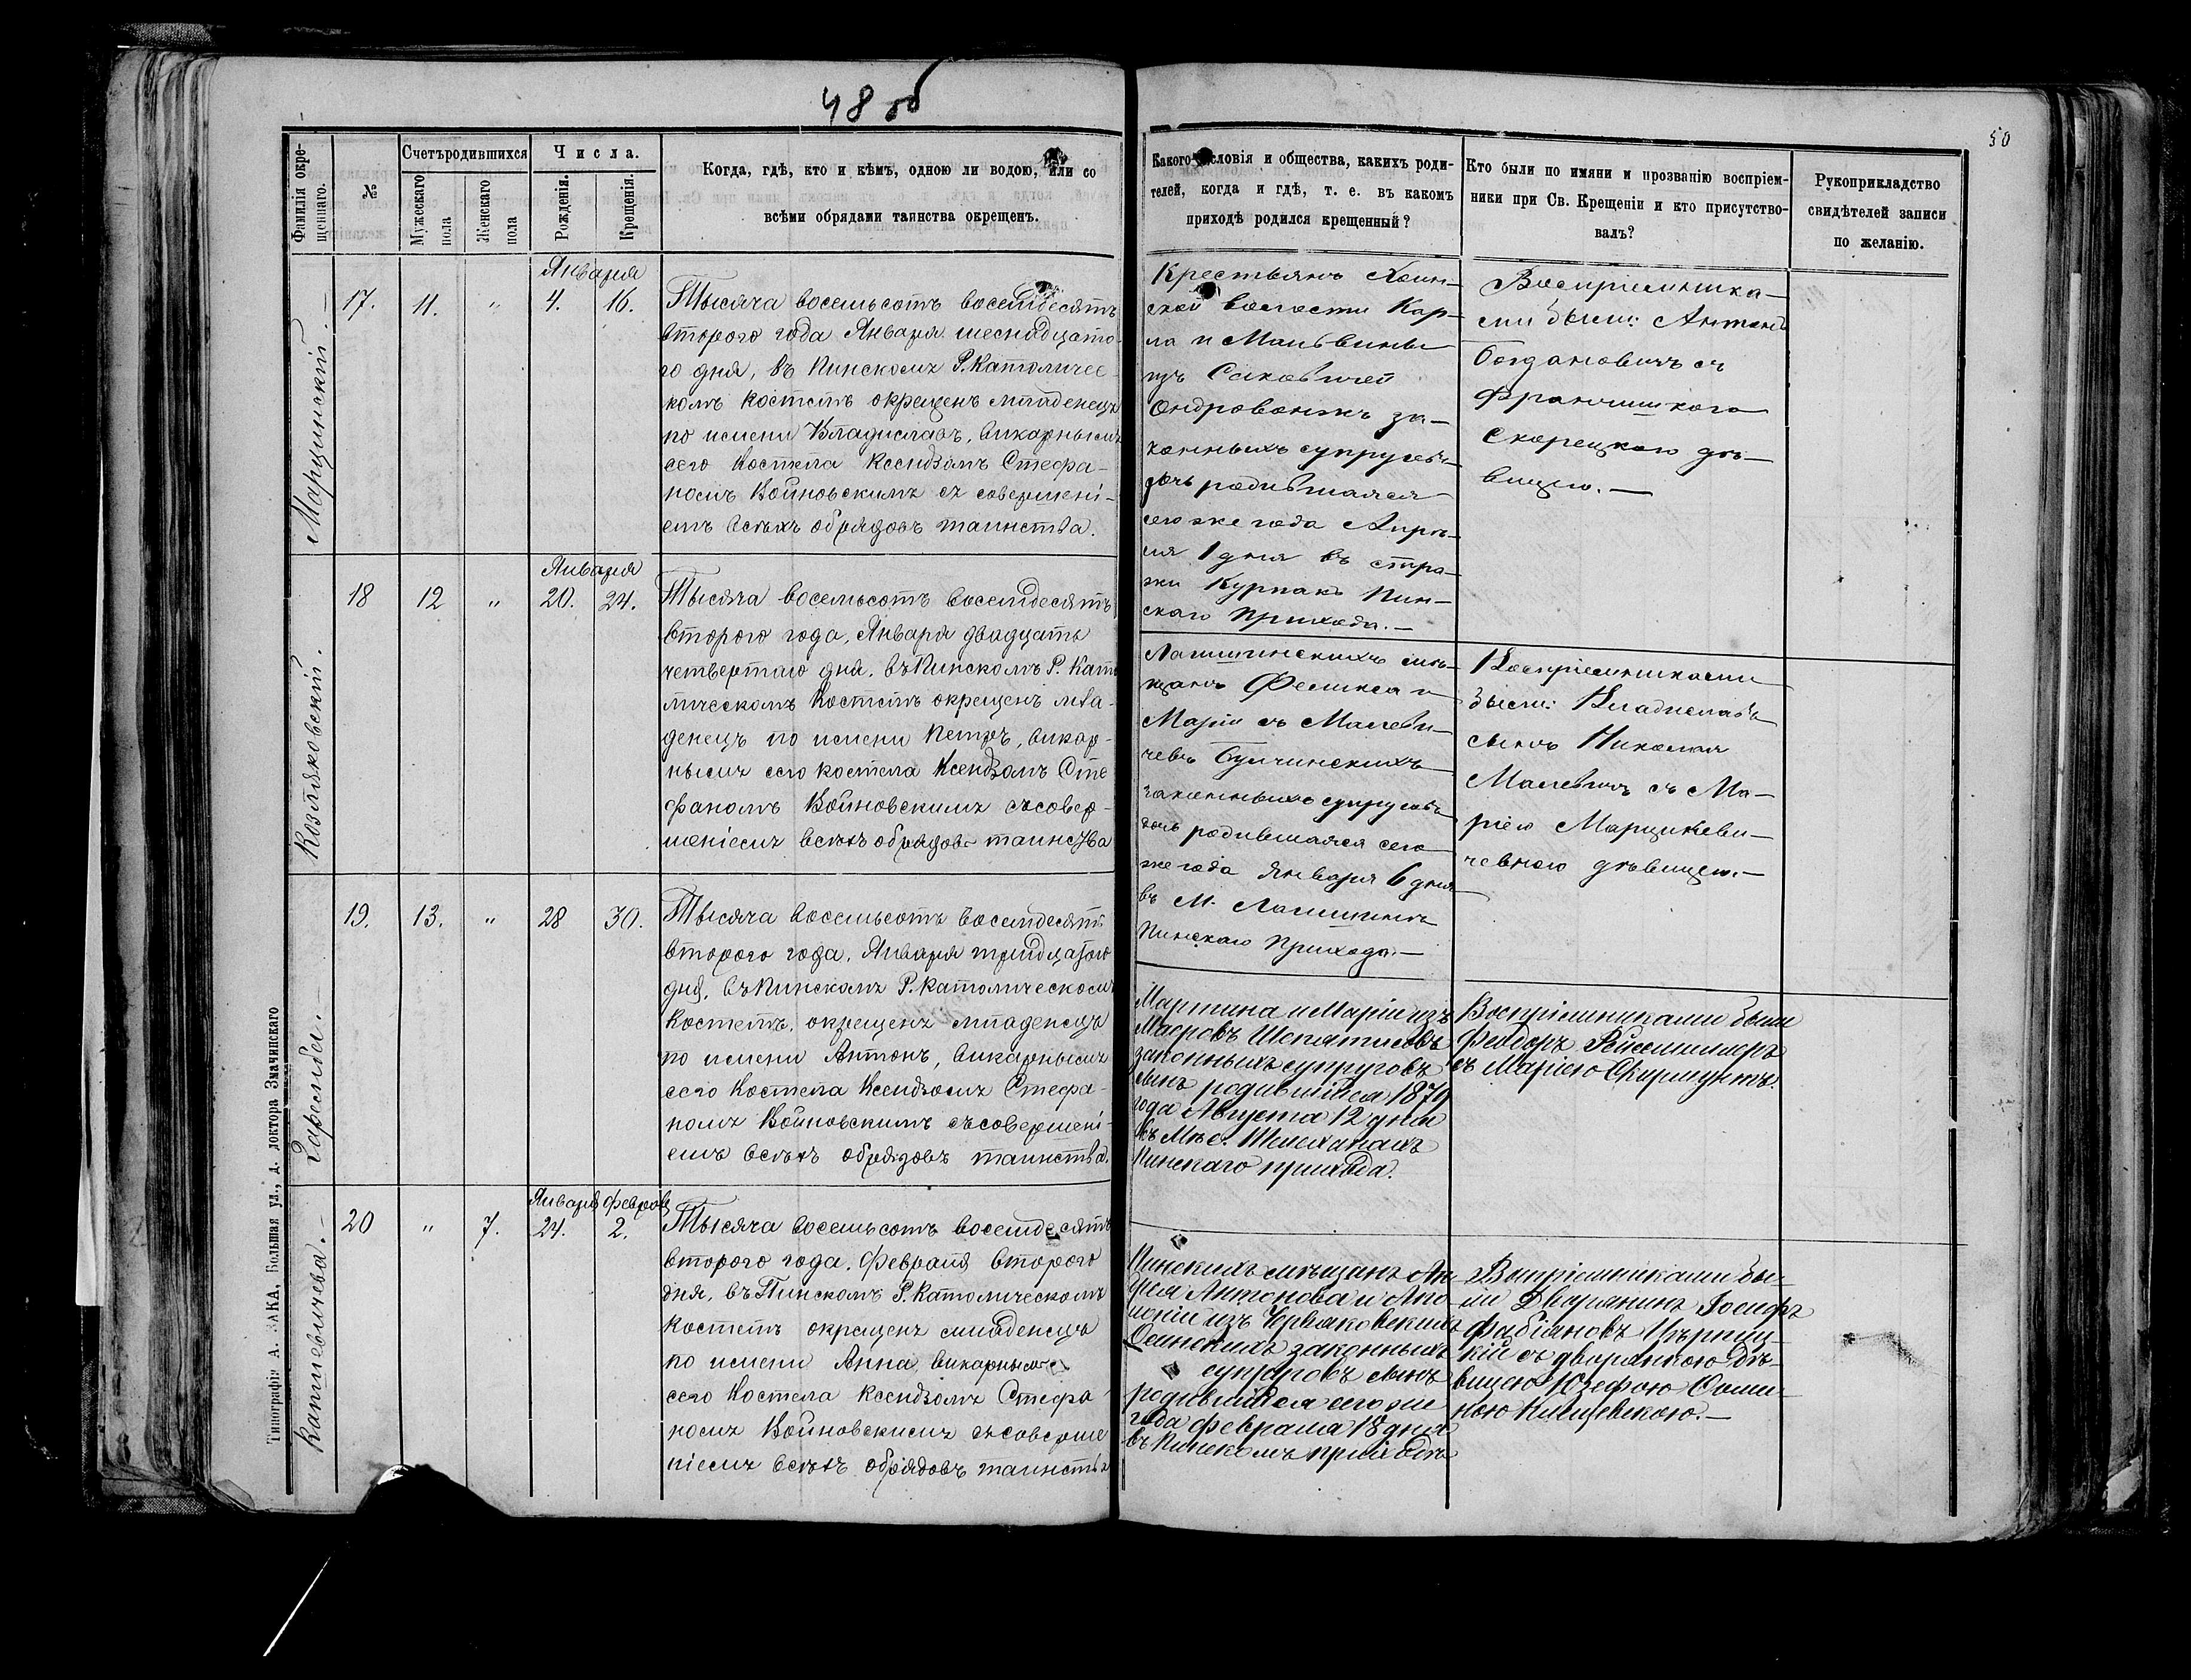 48 об
Фамилія окре-
щеннаго.
№
Счетъ родившихся
Мужескаго
пола
Женскаго
пола
Числа.
Рожденія.
Крещенія.
Когда, гдѣ, кто и кѣмъ, одною ли водою, или со
всѣми обрядами таинства окрещенъ.
Марцинскій.
17.
11.
"
Января
4.
16.
Тысяча восемьсотъ восемдесятъ
второго года Января шеснадцато-
го дня, въ Пинскомъ Р. Католичес-
комъ Костелѣ окрещенъ младенецъ
по имени Владиславъ, викарнымъ
сего Костела Ксендзомъ Стефа-
номъ Войновскимъ съ совершені-
емъ всѣхъ обрядовъ таинства.
Козляковскій.
18
12
"
Января
20.
24.
Тысяча восемьсотъ восемдесятъ
второго года, Января двадцать
четвертаго дня, въ Пинскомъ Р. Като
лическомъ Костелѣ окрещенъ мла-
денецъ по имени Петръ, викар-
нымъ сего костела Ксендзомъ Сте
фаномъ Войновскимъ съ совер-
шеніемъ всѣхъ обрядовъ таинства
19.
13.
"
28
30.
Тысяча восемьсотъ восемдесятъ
второго года, Января тридцатого
дня, въ Пинскомъ Р. Католическомъ
Костелѣ, окрещенъ младенецъ
по имени Антонъ, викарнымъ
сего Костела Ксендзомъ Стефа-
номъ Войновскимъ съ совершені-
емъ всѣхъ обрядовъ таинства.
20
"
7.
Января
24.
Февраля
2.
Тысяча восемьсотъ восемдесятъ
второго года, Февраля второго
дня, въ Пинскомъ Р. Католическомъ
Костелѣ окрещенъ младенецъ
по имени Анна викарнымъ
сего Костела Ксендзомъ Стефа-
номъ Войновскимъ съ соверше
ніемъ всѣхъ обрядовъ таинства
Типографія А. ЗАКА, Большая ул., д. доктора Змачинскаго
50
Какого сословія и общества, какихъ роди-
телей, когда и гдѣ, т. е. въ какомъ
приходѣ родился крещенный?
Кто были по имяни и прозванію воспріем-
ники при Св. Крещеніи и кто присутство-
валъ?
Рукоприкладство
свидѣтелей записи
по желанію.
Крестьянъ Хоин-
ской волости Кар-
ла и Мальвины
изъ
за-
конныхъ супруговъ
дочь родившаяся
сего же года Апрѣ-
ля 1 дня въ стра-
жи Пин-
скаго Прихода.
Воспріемника-
ми были: Антонъ
Богдановичъ съ
Франчишкою
Скорецкою дѣ-
вицею.
Логишинскихъ мѣ-
щанъ Феликса и
Маріи съ Малеви-
чевъ
законныхъ супруговъ
дочь родившаяся сего
же года Января 6 дня
въ М. Логишинѣ
Пинскаго Прихода.
Воспріемниками
были: Владиславъ
сынъ Николая
Малевичъ съ Ма-
ріею Марцинкеви-
чевною дѣвицею.
Мартина и Маріи изъ
законныхъ супруговъ
сынъ родившійся 1879
года Августа 12 дня
въ
Пинскаго прихода.
Воспріемниками были
Феодоръ
съ Маріею Скирмунтъ.
Пинскихъ мѣщанъ
Антонова и Апо-
лоніи изъ
законныхъ
супруговъ сынъ
родившійся сего же
года февраля 18 дня
въ Пинскомъ приходѣ
Воспріемниками бы-
ли Дворянинъ Іосифъ
Фабіановъ
кій съ дворянкою дѣ-
вицею Юзефою